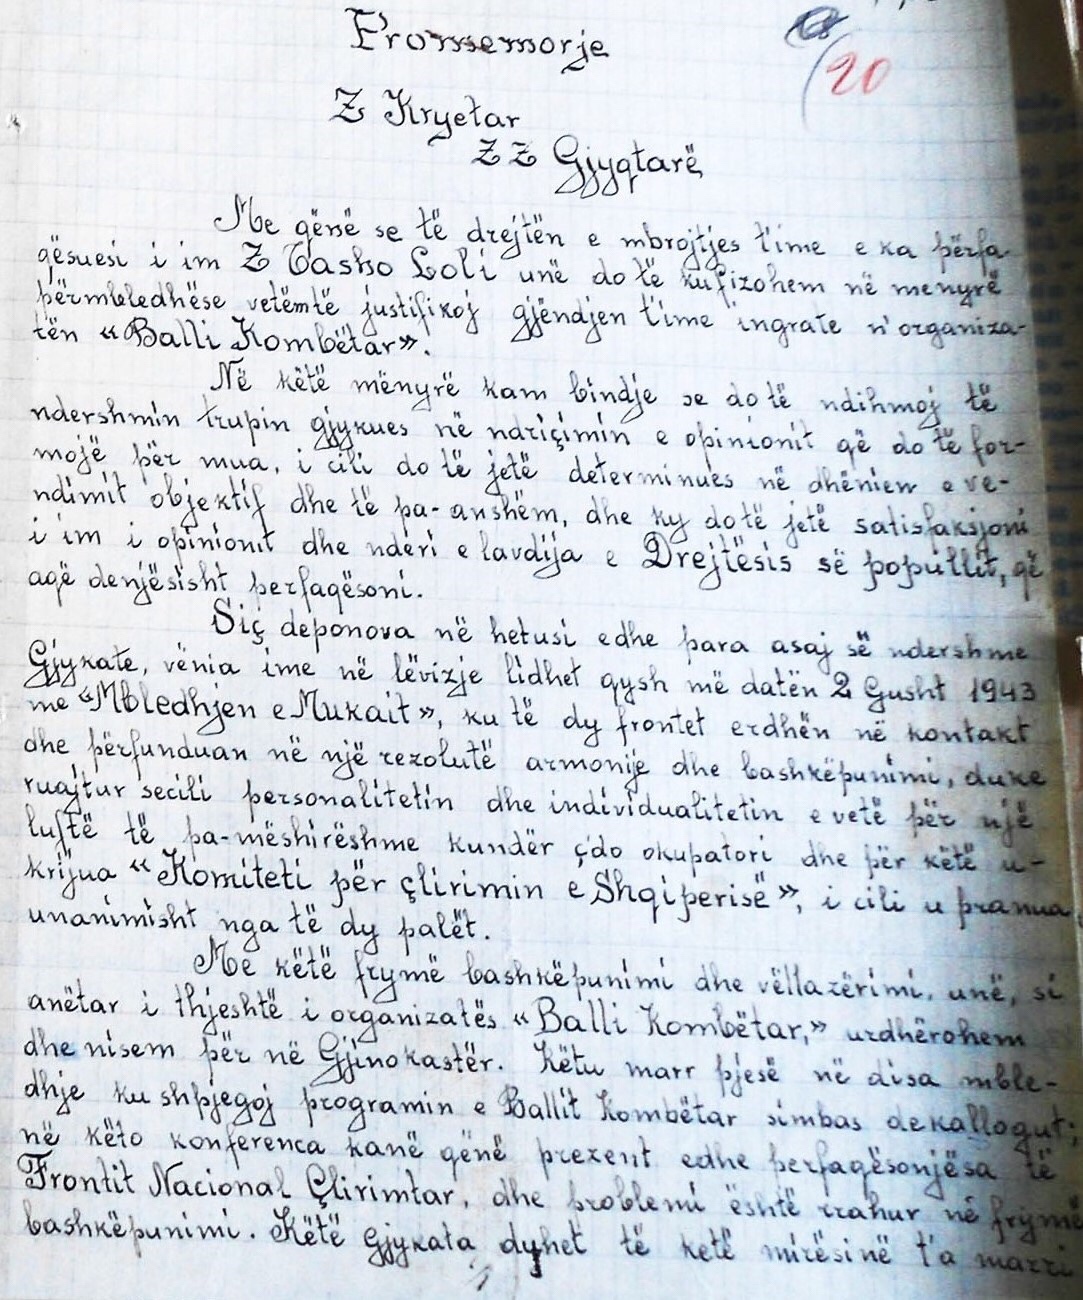 Promemorje
20
Z Kryetar
Z Z Gjyqtarë
Me qënë se të drejtën e mbrojtjes t'ime e ka përfa-
qësuesi i im Z Vasko Loli unë do të kufizohem në menyrë
përmbledhëse vetëmtë justifikoj gjëndjen t'ime ingrate n'organiza-
tën «Balli Kombëtar».
Në këtë mënyrë kam bindje se do të ndihmoj të
ndershmin trupin gjykues në ndriçimin e opinionit që do të for-
mojë për mua, i cili do të jetë determinues në dhënien e ve-
ndimit objektif dhe të pa-anshëm, dhe ky do të jetë satisfaksjoni
i im i opinionit dhe nderi e lavdija e Drejtësis së popullit, që
aqë denjësisht perfaqësoni.
Siç deponova në hetusi edhe para asaj së ndershme
Gjykate, vënia ime në lëvizje lidhet qysh më datën 2 Gusht 1943
me «Mbledhjen e Mukait», ku të dy frontet erdhën në kontakt
dhe përfunduan në një rezolutë armonije dhe bashkëpunimi, duke
ruajtur secili personalitetin dhe individualitetin e vetë për një
luftë të pa-mëshirëshme kundër çdo okupatori dhe për këtë u-
krijua «Komiteti për çlirimin e Shqiperisë», i cili u pranua
unanimisht nga të dy palët.
Me këtë frymë bashkëpunimi dhe vëllazërimi, unë, si
anëtar i thjeshtë i organizatës «Balli Kombëtar,» urdhërohem
dhe nisem për në Gjinokastër. Këtu marr pjesë në disa mble-
dhje ku shpjegoj programin e Ballit Kombëtar simbas dekallogut;
në këto konferenca kanë qënë prezent edhe perfaqësonjësa të
Frontit Nacional Çlirimtar, dhe problemi është rrahur në frymë
bashkëpunimi. Këtë Gjykata dyhet të ketë mirësinë t'a marri